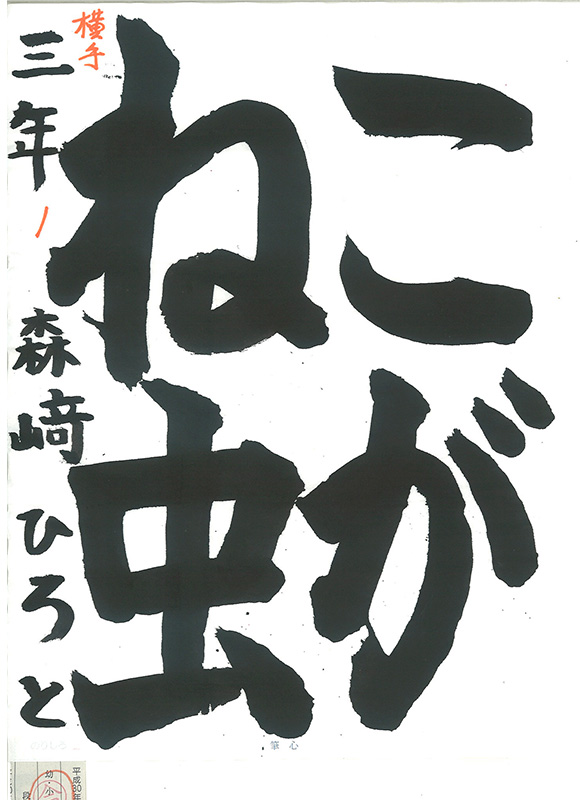 こが
ね虫
横手
三年
森﨑ひろと
筆心
平成30年
幼・小